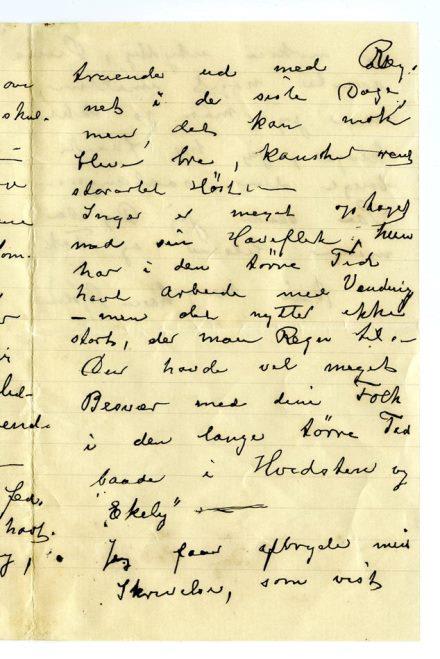 truende ud med Reg-
net i de siste Dage,
men, det kan nok
blive bra, kanske
storartet Høst —
Ingar er meget optaget
med sin Haveflek, hun
har i den tørre Tid
havt Arbeide med Vanding
— men det nytter ikke
stort, der maa Regn til —
Der havde vel meget
Besvær med dine Folk
i den lange tørre Tid
baade i Hvidsten og
"Ekely" —
Jeg faar afbryde min
Skrivelse, som vist